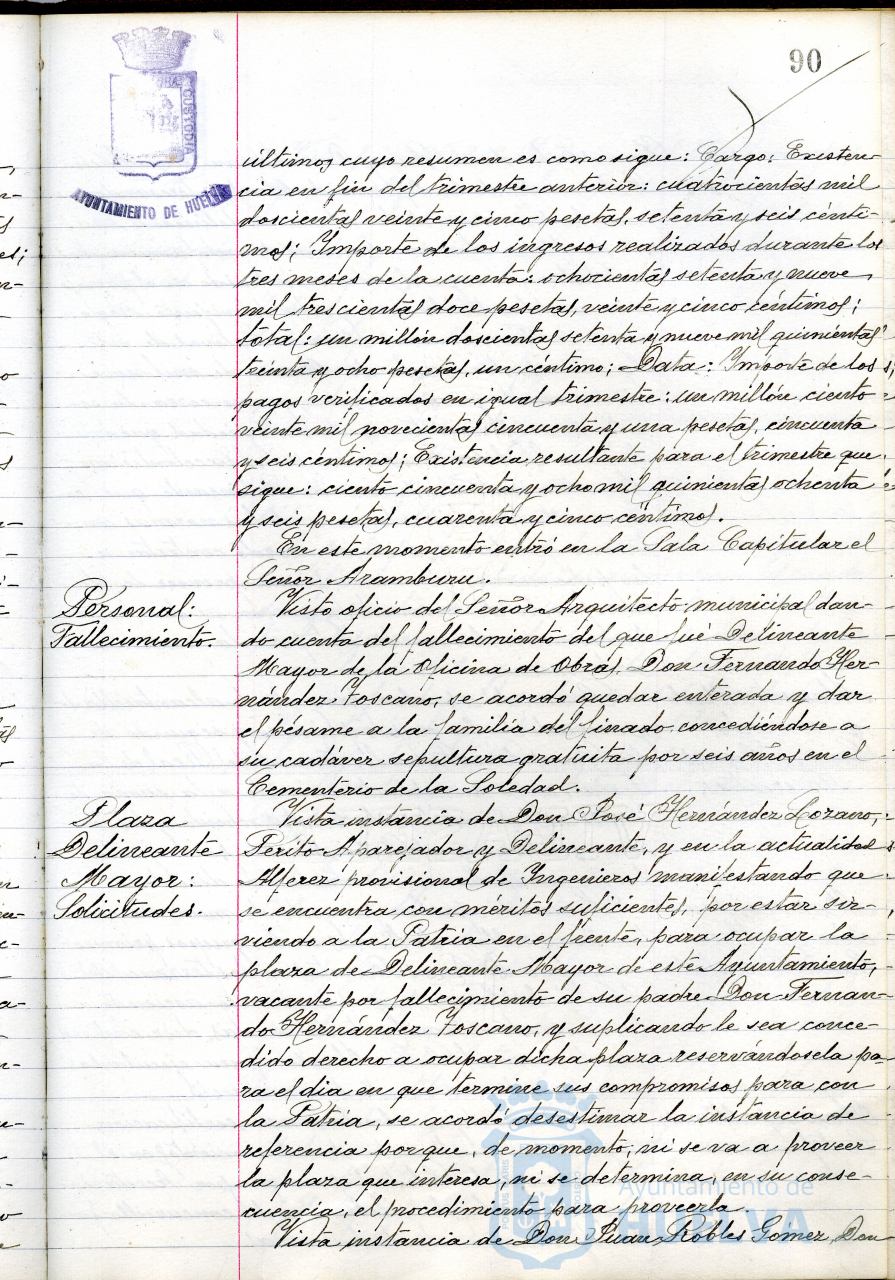 90
AYUNTAMIENTO DE HUELVA
CUSTODIA
últimos cuyo resumen es como sigue: Cargo: Existen-
cia en fin del trimestre anterior: cuatrocientas mil
doscientas veinte y cinco pesetas, setenta y seis cénti-
mos; Importe de los ingresos realizados durante los
tres meses de la cuenta: ochocientas setenta y nueve
mil trescientas doce pesetas, veinte y cinco céntimos;
total: un millón doscientas setenta y nueve mil quinientas
treinta y ocho pesetas, un céntimo; Data: Importe de los
pagos verificados en igual trimestre: un millón ciento
veinte mil novecientas cincuenta y una pesetas, cincuenta
y seis céntimos; Existencia resultante para el trimestre que
sigue: ciento cincuenta y ocho mil quinientas ochenta
y seis pesetas, cuarenta y cinco céntimos.
En este momento entró en la Sala Capitular el
Señor Aramburu.
Personal:
Fallecimiento.
Visto oficio del Señor Arquitecto municipal dan-
do cuenta del fallecimiento del que fué Delineante
Mayor de la Oficina de Obras, Don Fernando Her-
nández Toscano, se acordó quedar enterada y dar
el pésame a la familia del finado, concediéndose a
su cadáver sepultura gratuita por seis años en el
Cementerio de la Soledad.
Plaza
Delineante
Mayor:
Solicitudes.
Vista instancia de Don José Hernández Lozano,
Perito Aparejador y Delineante, y en la actualidad
Alferez provisional de Ingenieros manifestando que
se encuentra con méritos suficientes, por estar sir-
viendo a la Patria en el frente, para ocupar la
plaza de Delineante Mayor de este Ayuntamiento,
vacante por fallecimiento de su padre Don Fernan-
do Hernández Toscano, y suplicando le sea conce-
dido derecho a ocupar dicha plaza reservándosela pa-
ra el dia en que termine sus compromisos para con
la Patria, se acordó desestimar la instancia de
referencia porque, de momento, ni se va a proveer
la plaza que interesa, ni se determina, en su conse-
cuencia, el procedimiento para proveerla.
Vista instancia de Don Juan Robles Gomez, Don
Ayuntamiento de
HUELVA